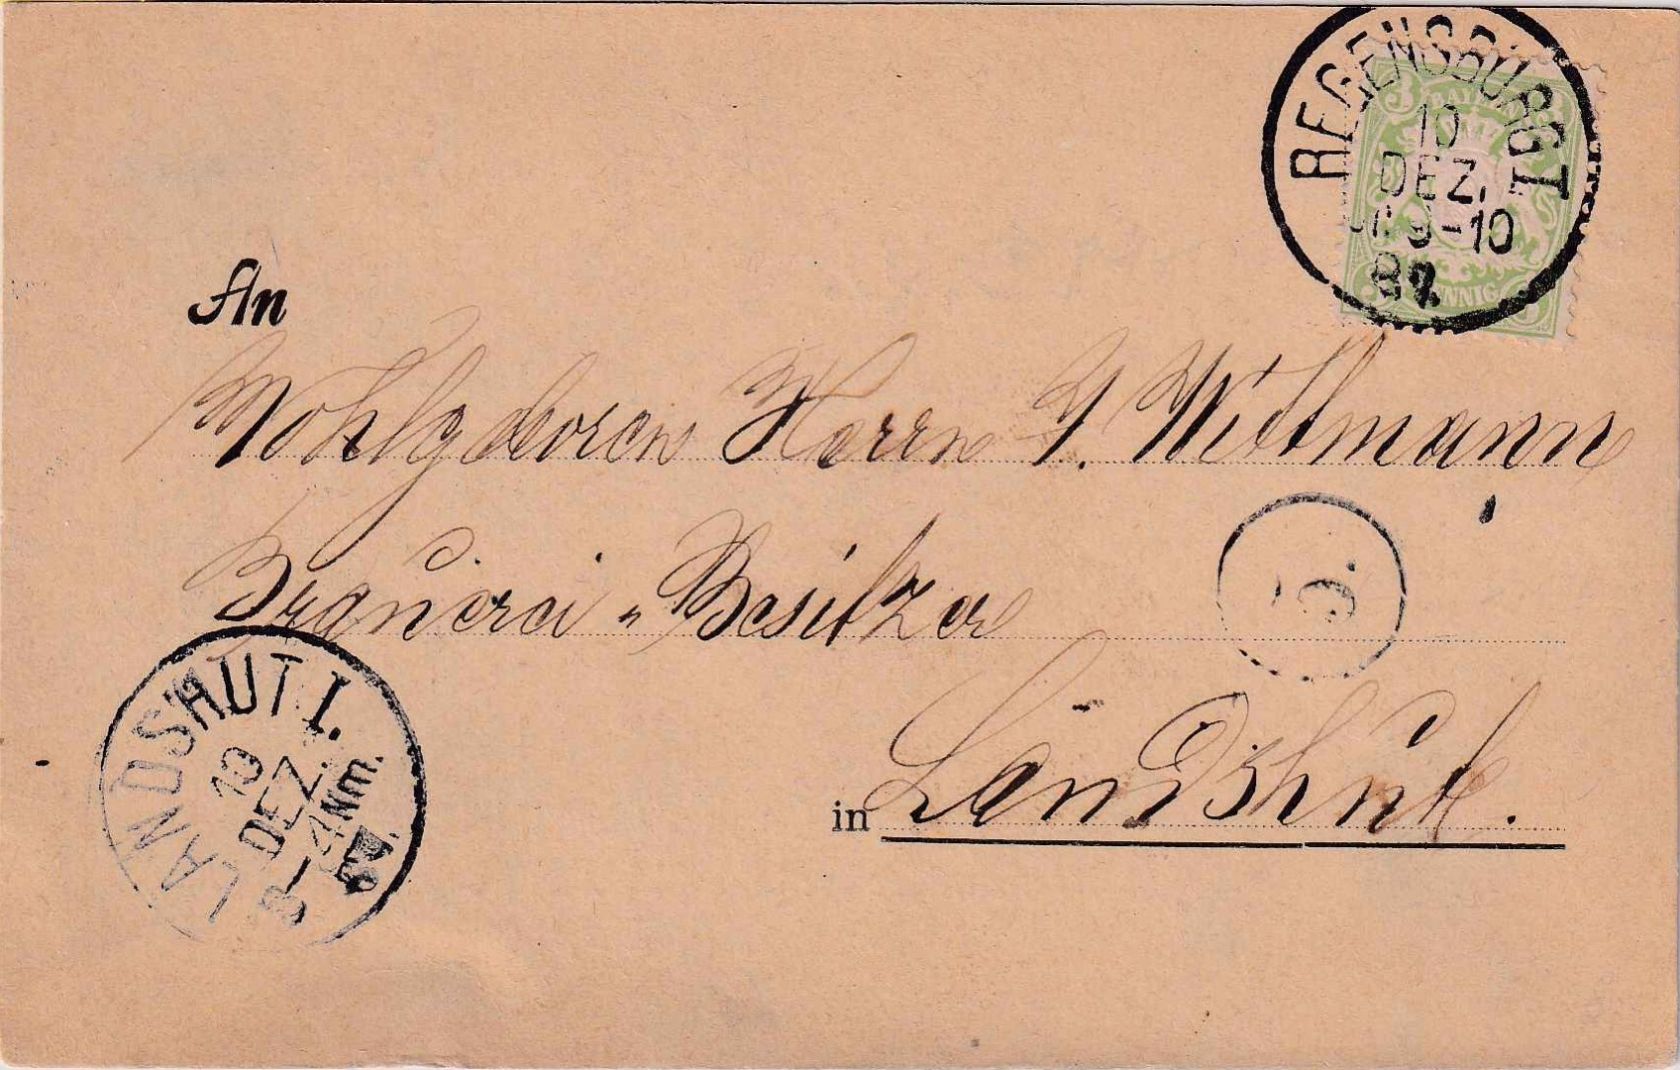 REGENSBURG I
10
DEZ.
9-10
BAYERN
3
PFENNIG
An
Wohlgeboren Herrn J. Wittmann
Brauerei-Besitzer
in Landshut.
LANDSHUT I.
10
DEZ.
3-4 Nm.
87.
5.